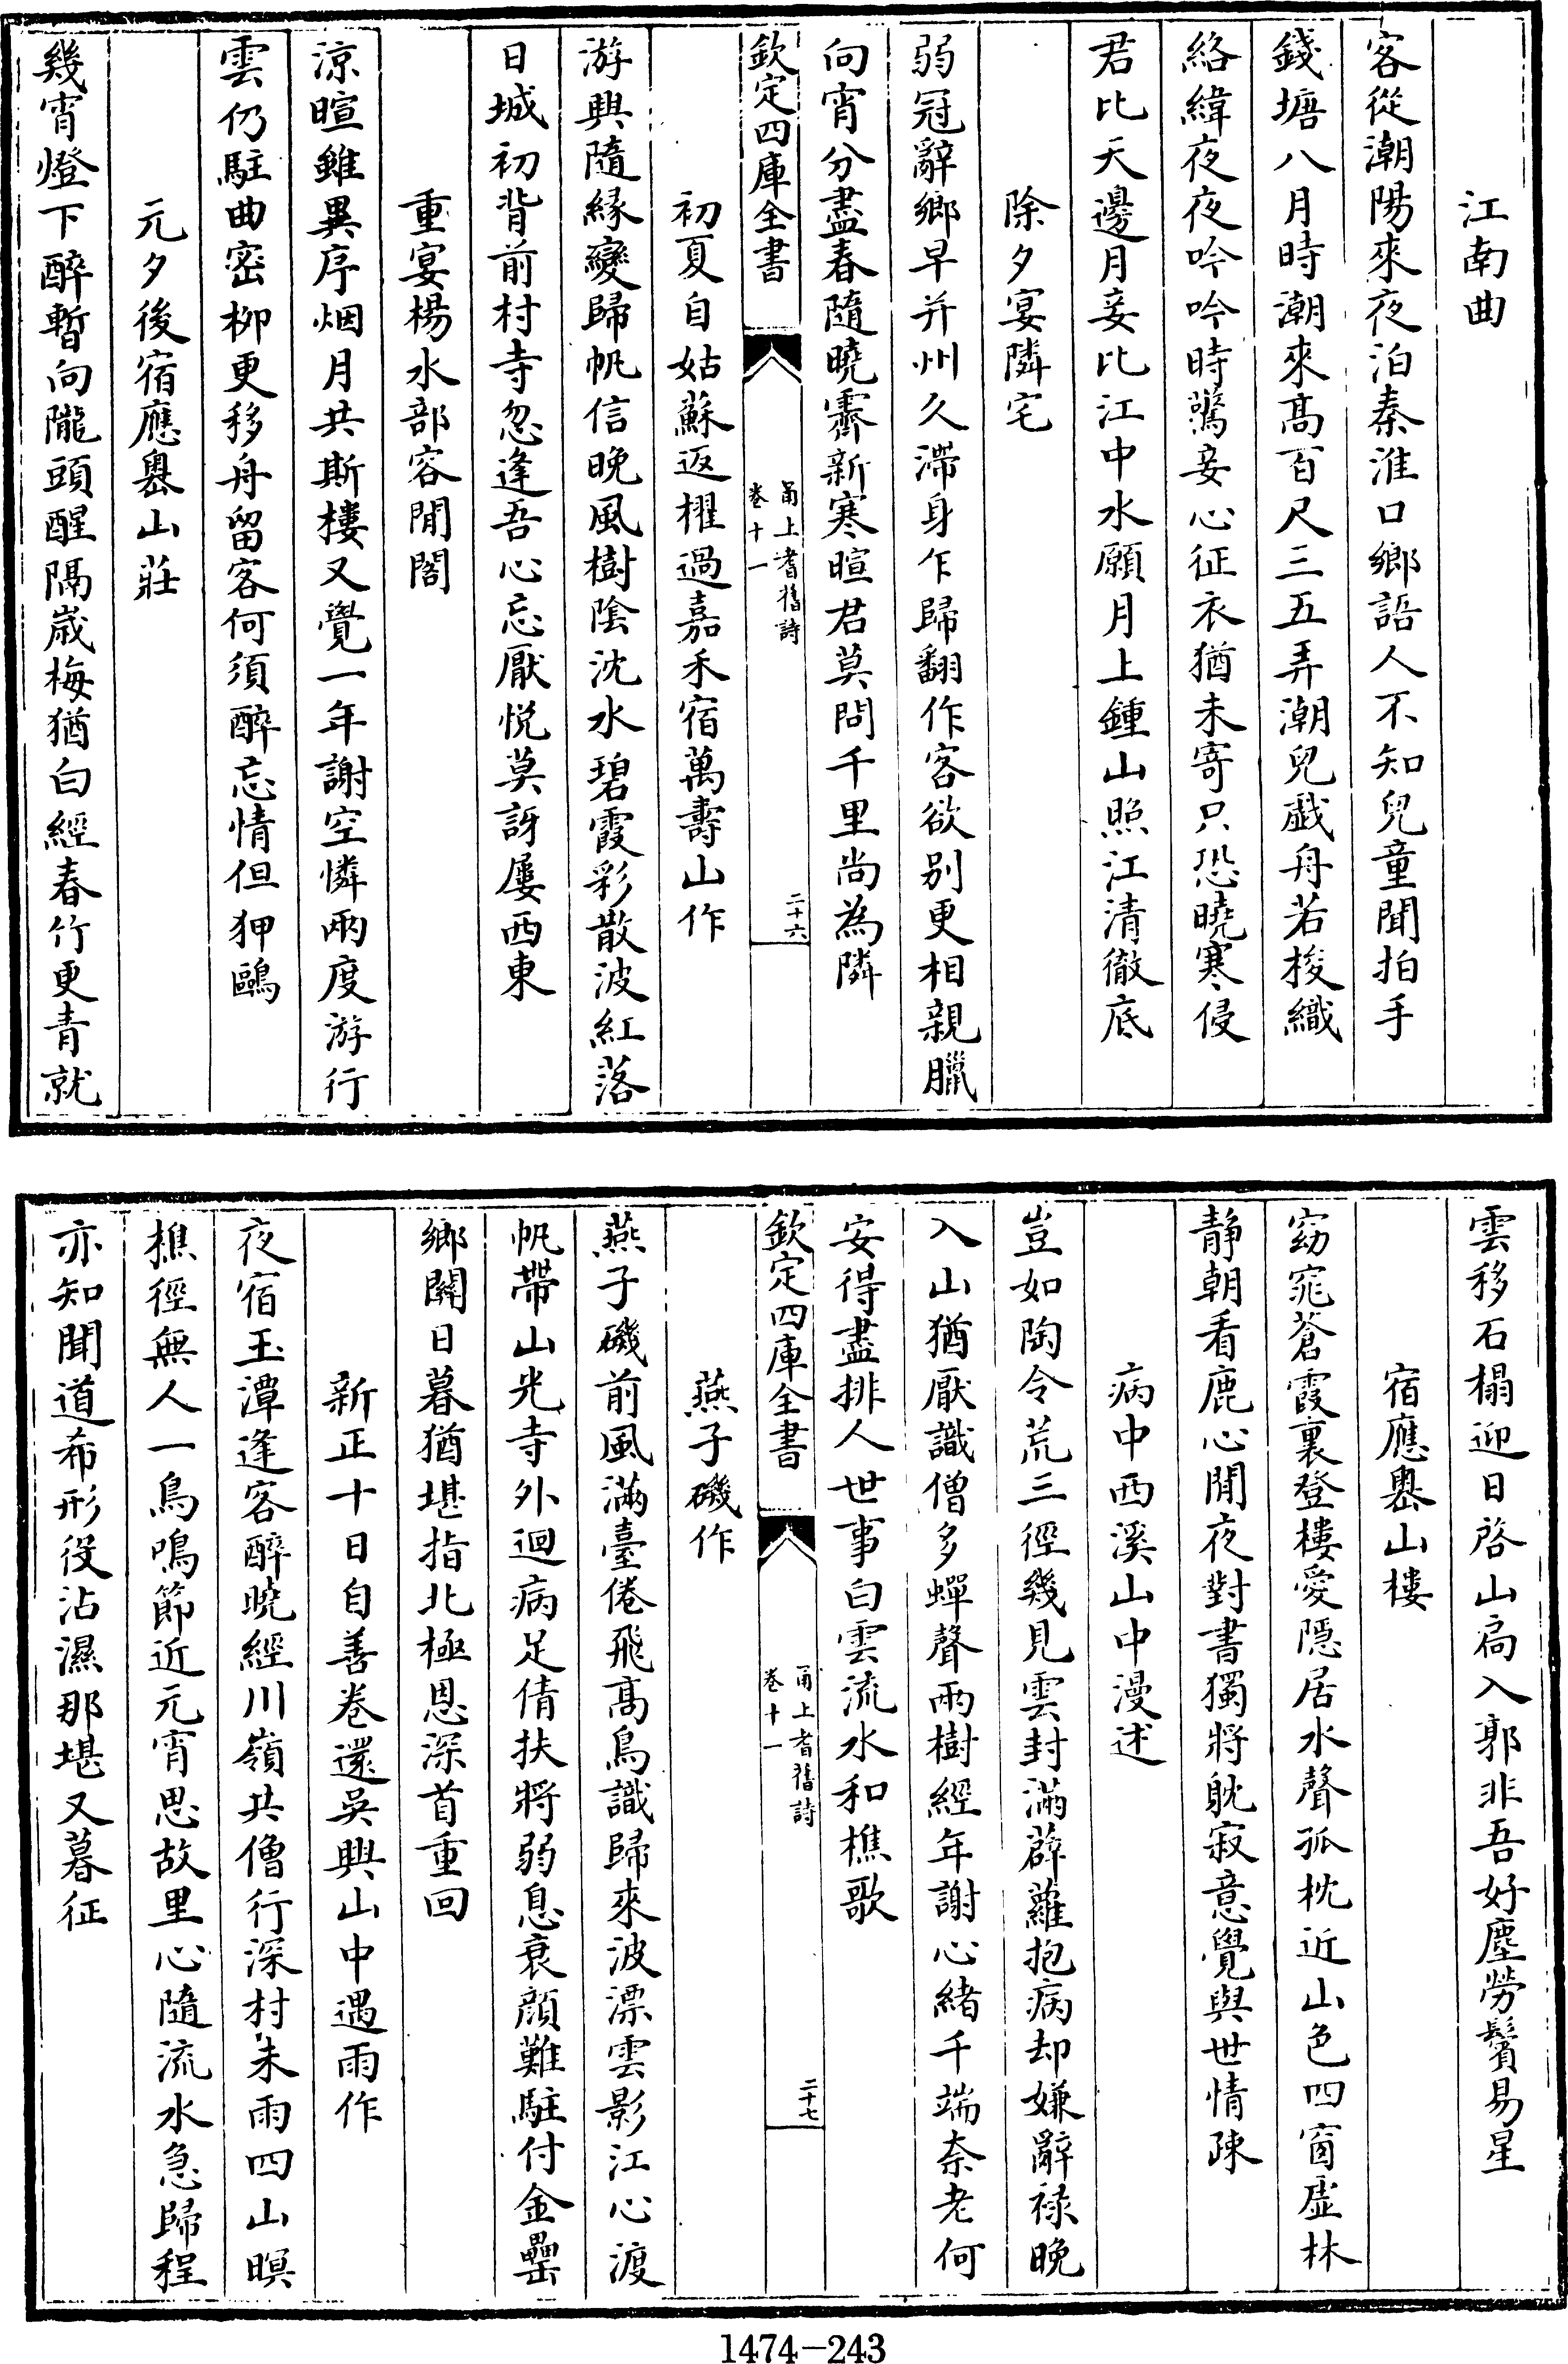 江南曲
客從潮陽來夜泊秦淮口鄉語人不知兒童聞拍手
錢塘八月時潮來髙百尺三五弄潮兒戯舟若梭織
絡緯夜夜吟吟時驚妾心征衣猶未寄只恐曉寒侵
君比天邊月妾比江中水願月上鍾山照江清徹底
除夕宴隣宅
弱冠辭鄉早并州久滯身乍歸翻作客欲别更相親臘
向宵分盡春隨曉霽新寒暄君莫問千里尚為隣
欽定四庫全書
甬上耆舊詩
卷十一
二十六
初夏自姑蘇返櫂過嘉禾宿萬壽山作
游興隨緣變歸帆信晚風樹陰沈水碧霞彩散波紅落
日城初背前村寺忽逢吾心忘厭悦莫訝屢西東
重宴楊水部容閒閣
涼暄雖異序烟月共斯樓又覺一年謝空憐兩度游行
雲仍駐曲密栁更移舟留客何須醉忘情但狎鷗
元夕後宿應㠗山莊
幾宵燈下醉暫向隴頭醒隔嵗梅猶白經春竹更青就
雲移石榻迎日啓山扃入郭非吾好塵勞鬢易星
宿應㠗山樓
窈窕蒼霞裏登樓愛隠居水聲孤枕近山色四窗虛林
静朝看鹿心閒夜對書獨將躭寂意覺與世情疎
病中西溪山中漫述
豈如陶令荒三徑幾見雲封滿薜蘿抱病却嫌辭禄晚
入山猶厭識僧多蟬聲兩樹經年謝心緒千端奈老何
安得盡排人世事白雲流水和樵歌
欽定四庫全書
甬上耆舊詩
卷十一
二十七
燕子磯作
燕子磯前風滿臺倦飛髙鳥識歸來波漂雲影江心渡
帆帶山光寺外迴病足倩扶將弱息衰顔難駐付金罍
鄉關日暮猶堪指北極恩深首重回
新正十日自善卷還吳興山中遇雨作
夜宿玉潭逢客醉曉經川嶺共僧行深村未雨四山暝
樵徑無人一鳥鳴節近元宵思故里心隨流水急歸程
亦知聞道希形役沾濕那堪又暮征
1474-243